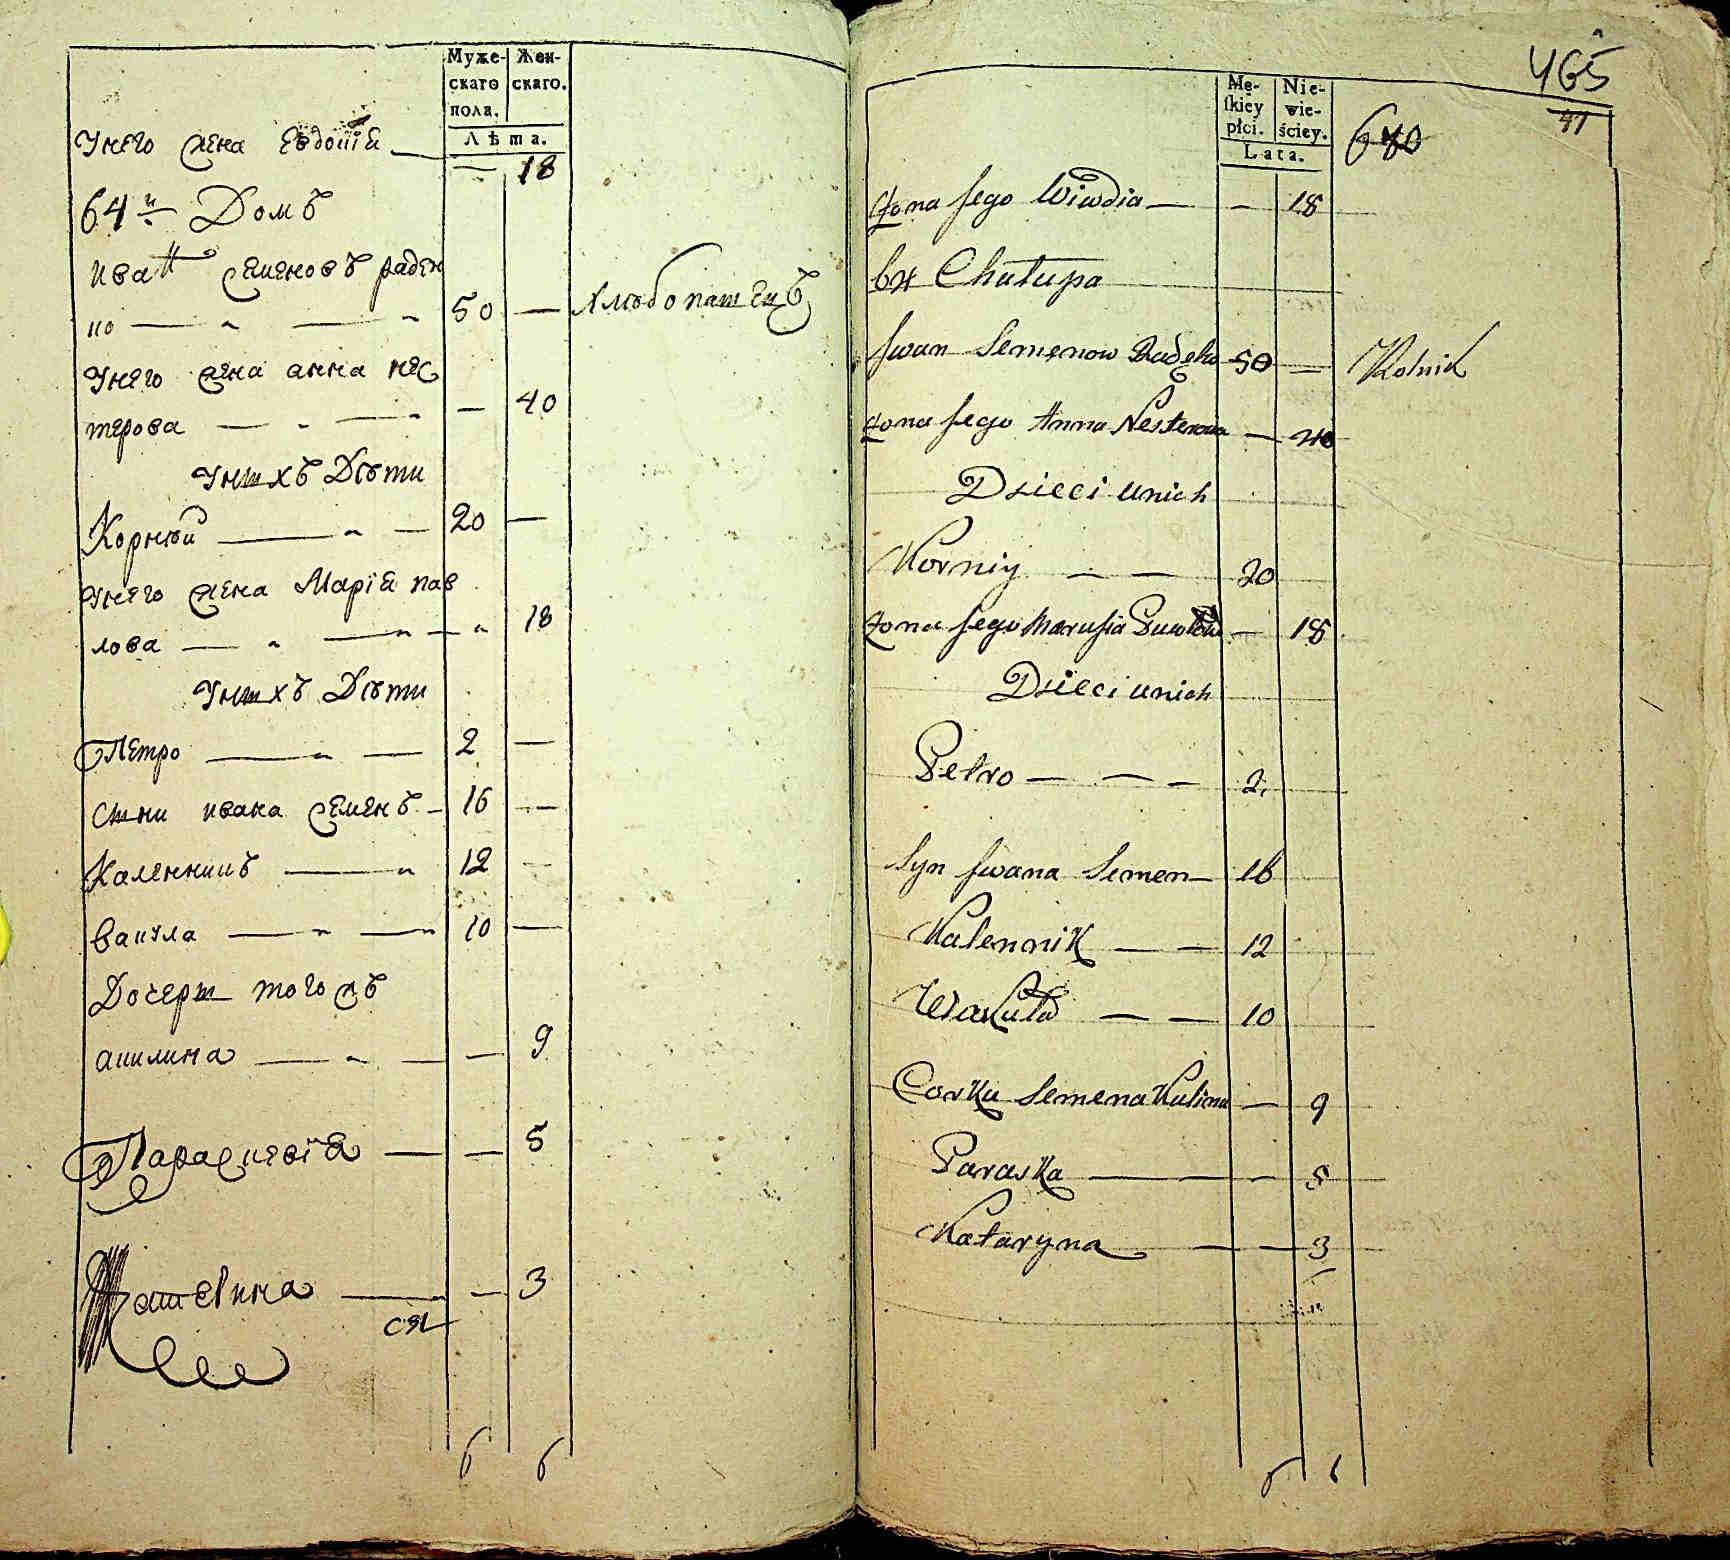 Муже-
скаго
пола.
Жен-
скаго.
Лѣта.
Унего жена Евдокіѧ — — 18
64й Домъ
иванъ семеновъ раден
ко — „ — „ 50 — хлѣбопашецъ
Унего жена анна нес
терова — „ — „ — 40
Унихъ Дѣти
Корнѣй — „ — 20 —
Унего жена Маріѧ пав
лова — „ — „ — „ 18
Унихъ Дѣти
Петро — „ — 2 —
сыни ивана семенъ — 16 —
Каленникъ — „ 12 —
вакула — „ — „ 10 —
Дочеры тогожъ
акилина — „ — — 9
Параскевіѧ — — 5
Катерина — „ — 3
6 6
465
47
Mę-
ſkiey
płci.
Nie-
wie-
ściey.
Lata.
680
żona Jego Wiwdia — — 18
64 Chałupa
Jwan Semenow Radęko 50 — Rolnik
żona Jego Anna Nesterowa — 40
Dzieci unich
Korniy — — 20
żona Jego Marusia — 18
Dzieci unich
Petro — — — 2.
Syn Jwana Semen — 16
Kalennik — — 12
Wakuła — — 10
Corka Semena Kulina — 9
Paraska — — - 5
Kataryna — — 3
6 6